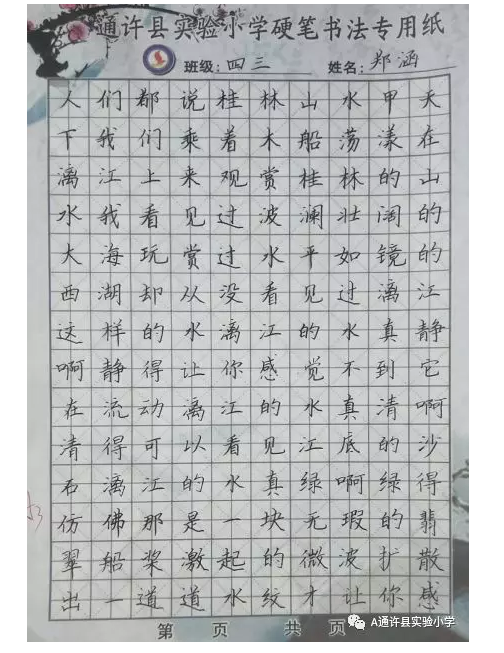 通许县实验小学硬笔书法专用纸
班级:四三 姓名:郑涵
人们都说桂林山水甲天
下我们乘着木船荡漾在
漓江上来观赏桂林的山
水我看见过波澜壮阔的
大海玩赏过水平如镜的
西湖却从没看见过漓江
这样的水漓江的水真静
啊静得让你感觉不到它
在流动漓江的水真清啊
清得可以看见江底的沙
石漓江的水真绿啊绿得
仿佛那是一块无瑕的翡
翠船桨激起的微波扩散
出一道道水纹才让你感
第 页 共 页
A通许县实验小学